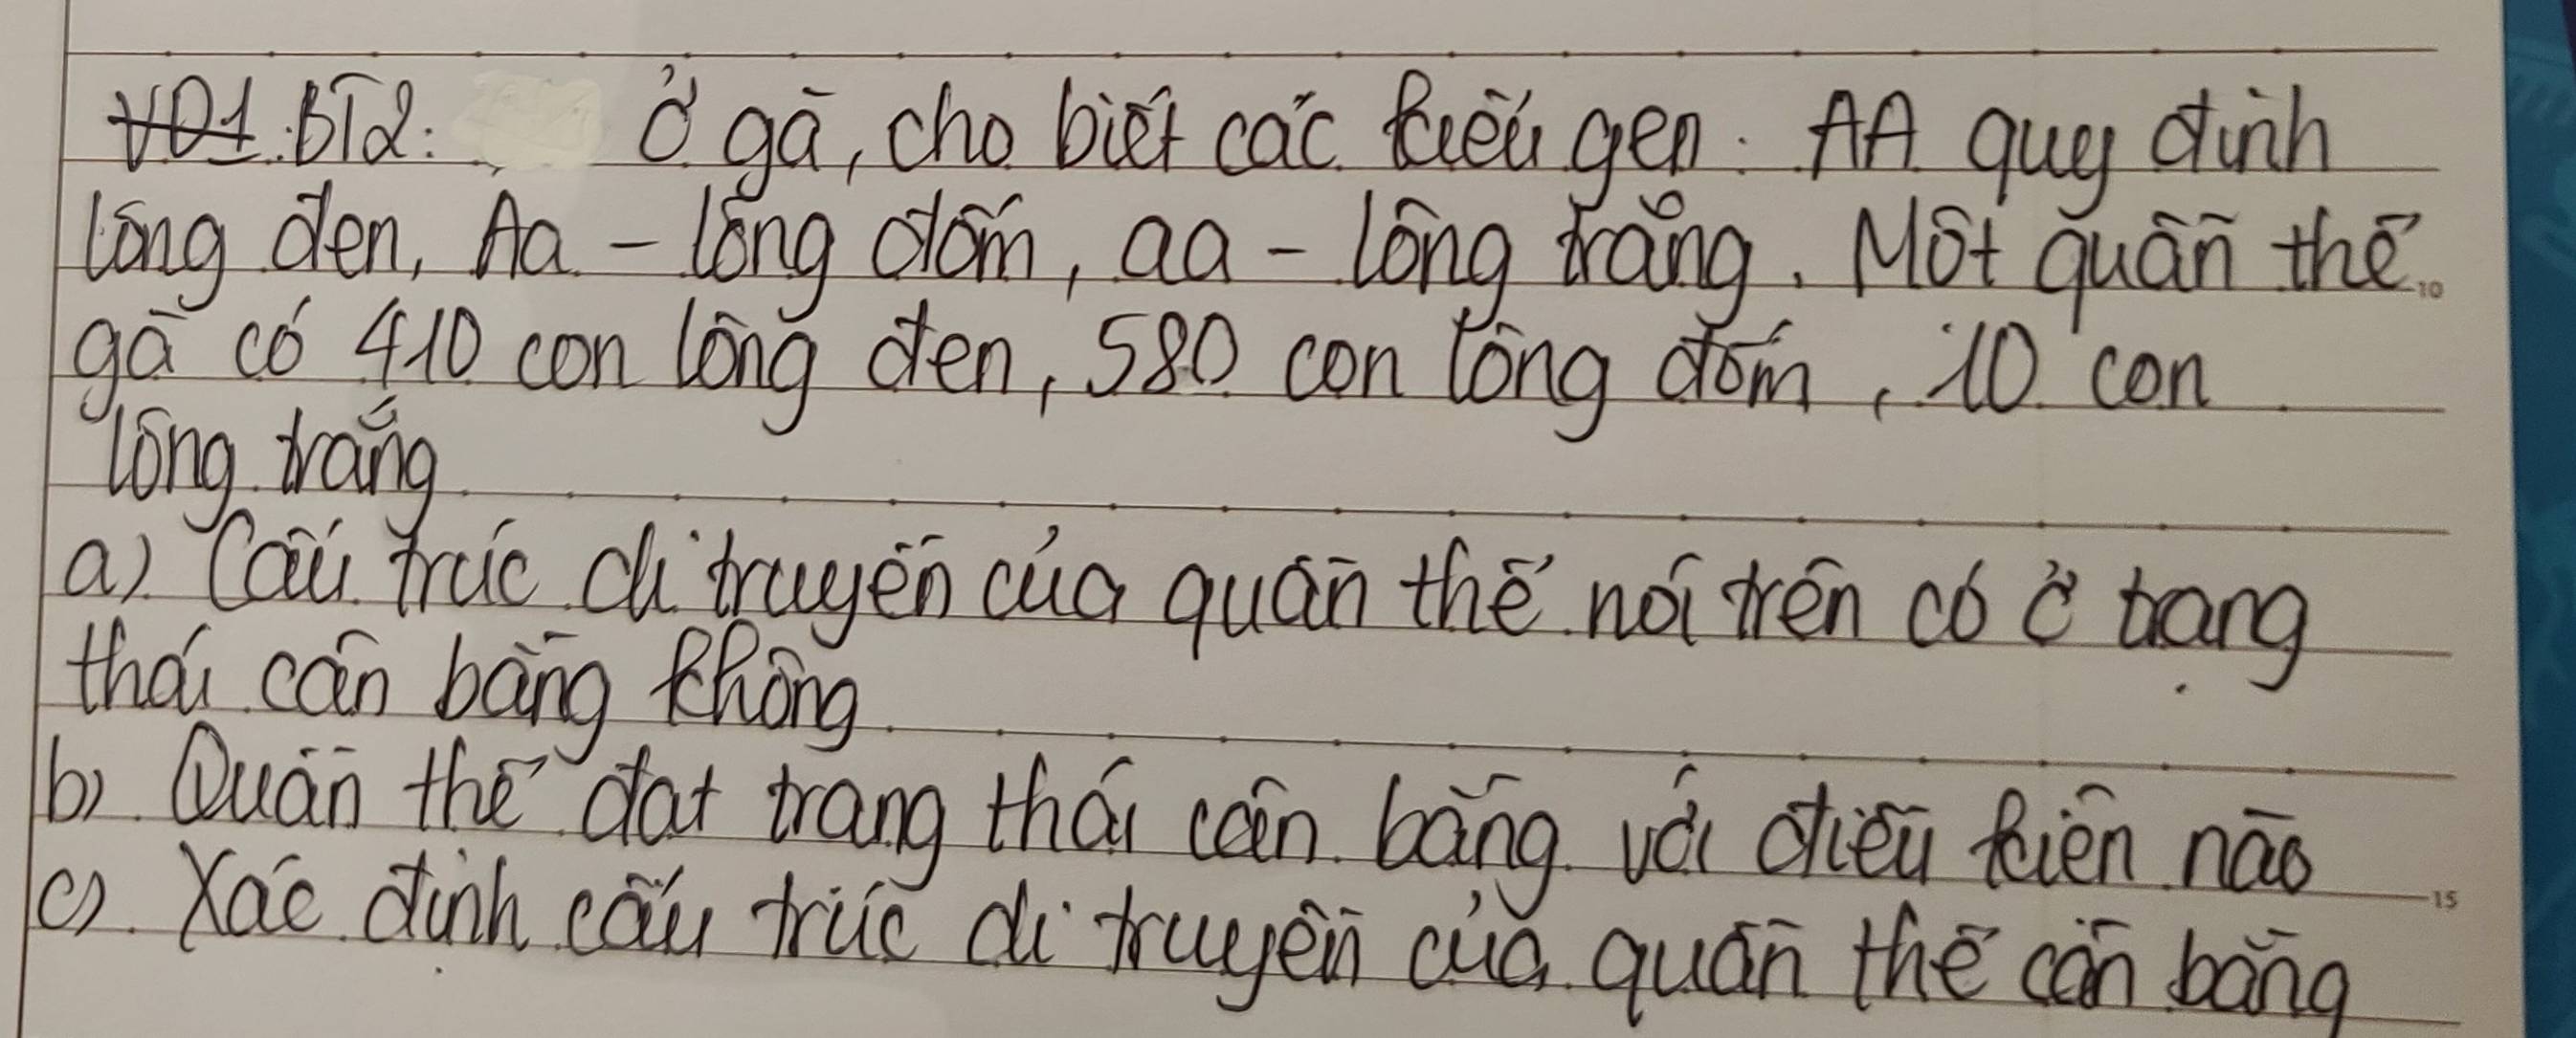 VD1 BT2: Ở gà, cho biết các kiểu gen: AA quy định
lông đen, Aa - lông đốm, aa - lông trắng. Một quần thể
gà có 410 con lông đen, 580 con lông đốm, 10 con
lông trắng
a) Cấu trúc di truyền của quần thể nói trên có ở trạng
thái cân bằng không
b) Quần thể đạt trạng thái cân bằng với điều kiện nào
c) Xác định cấu trúc di truyền của quần thể cân bằng
10
15